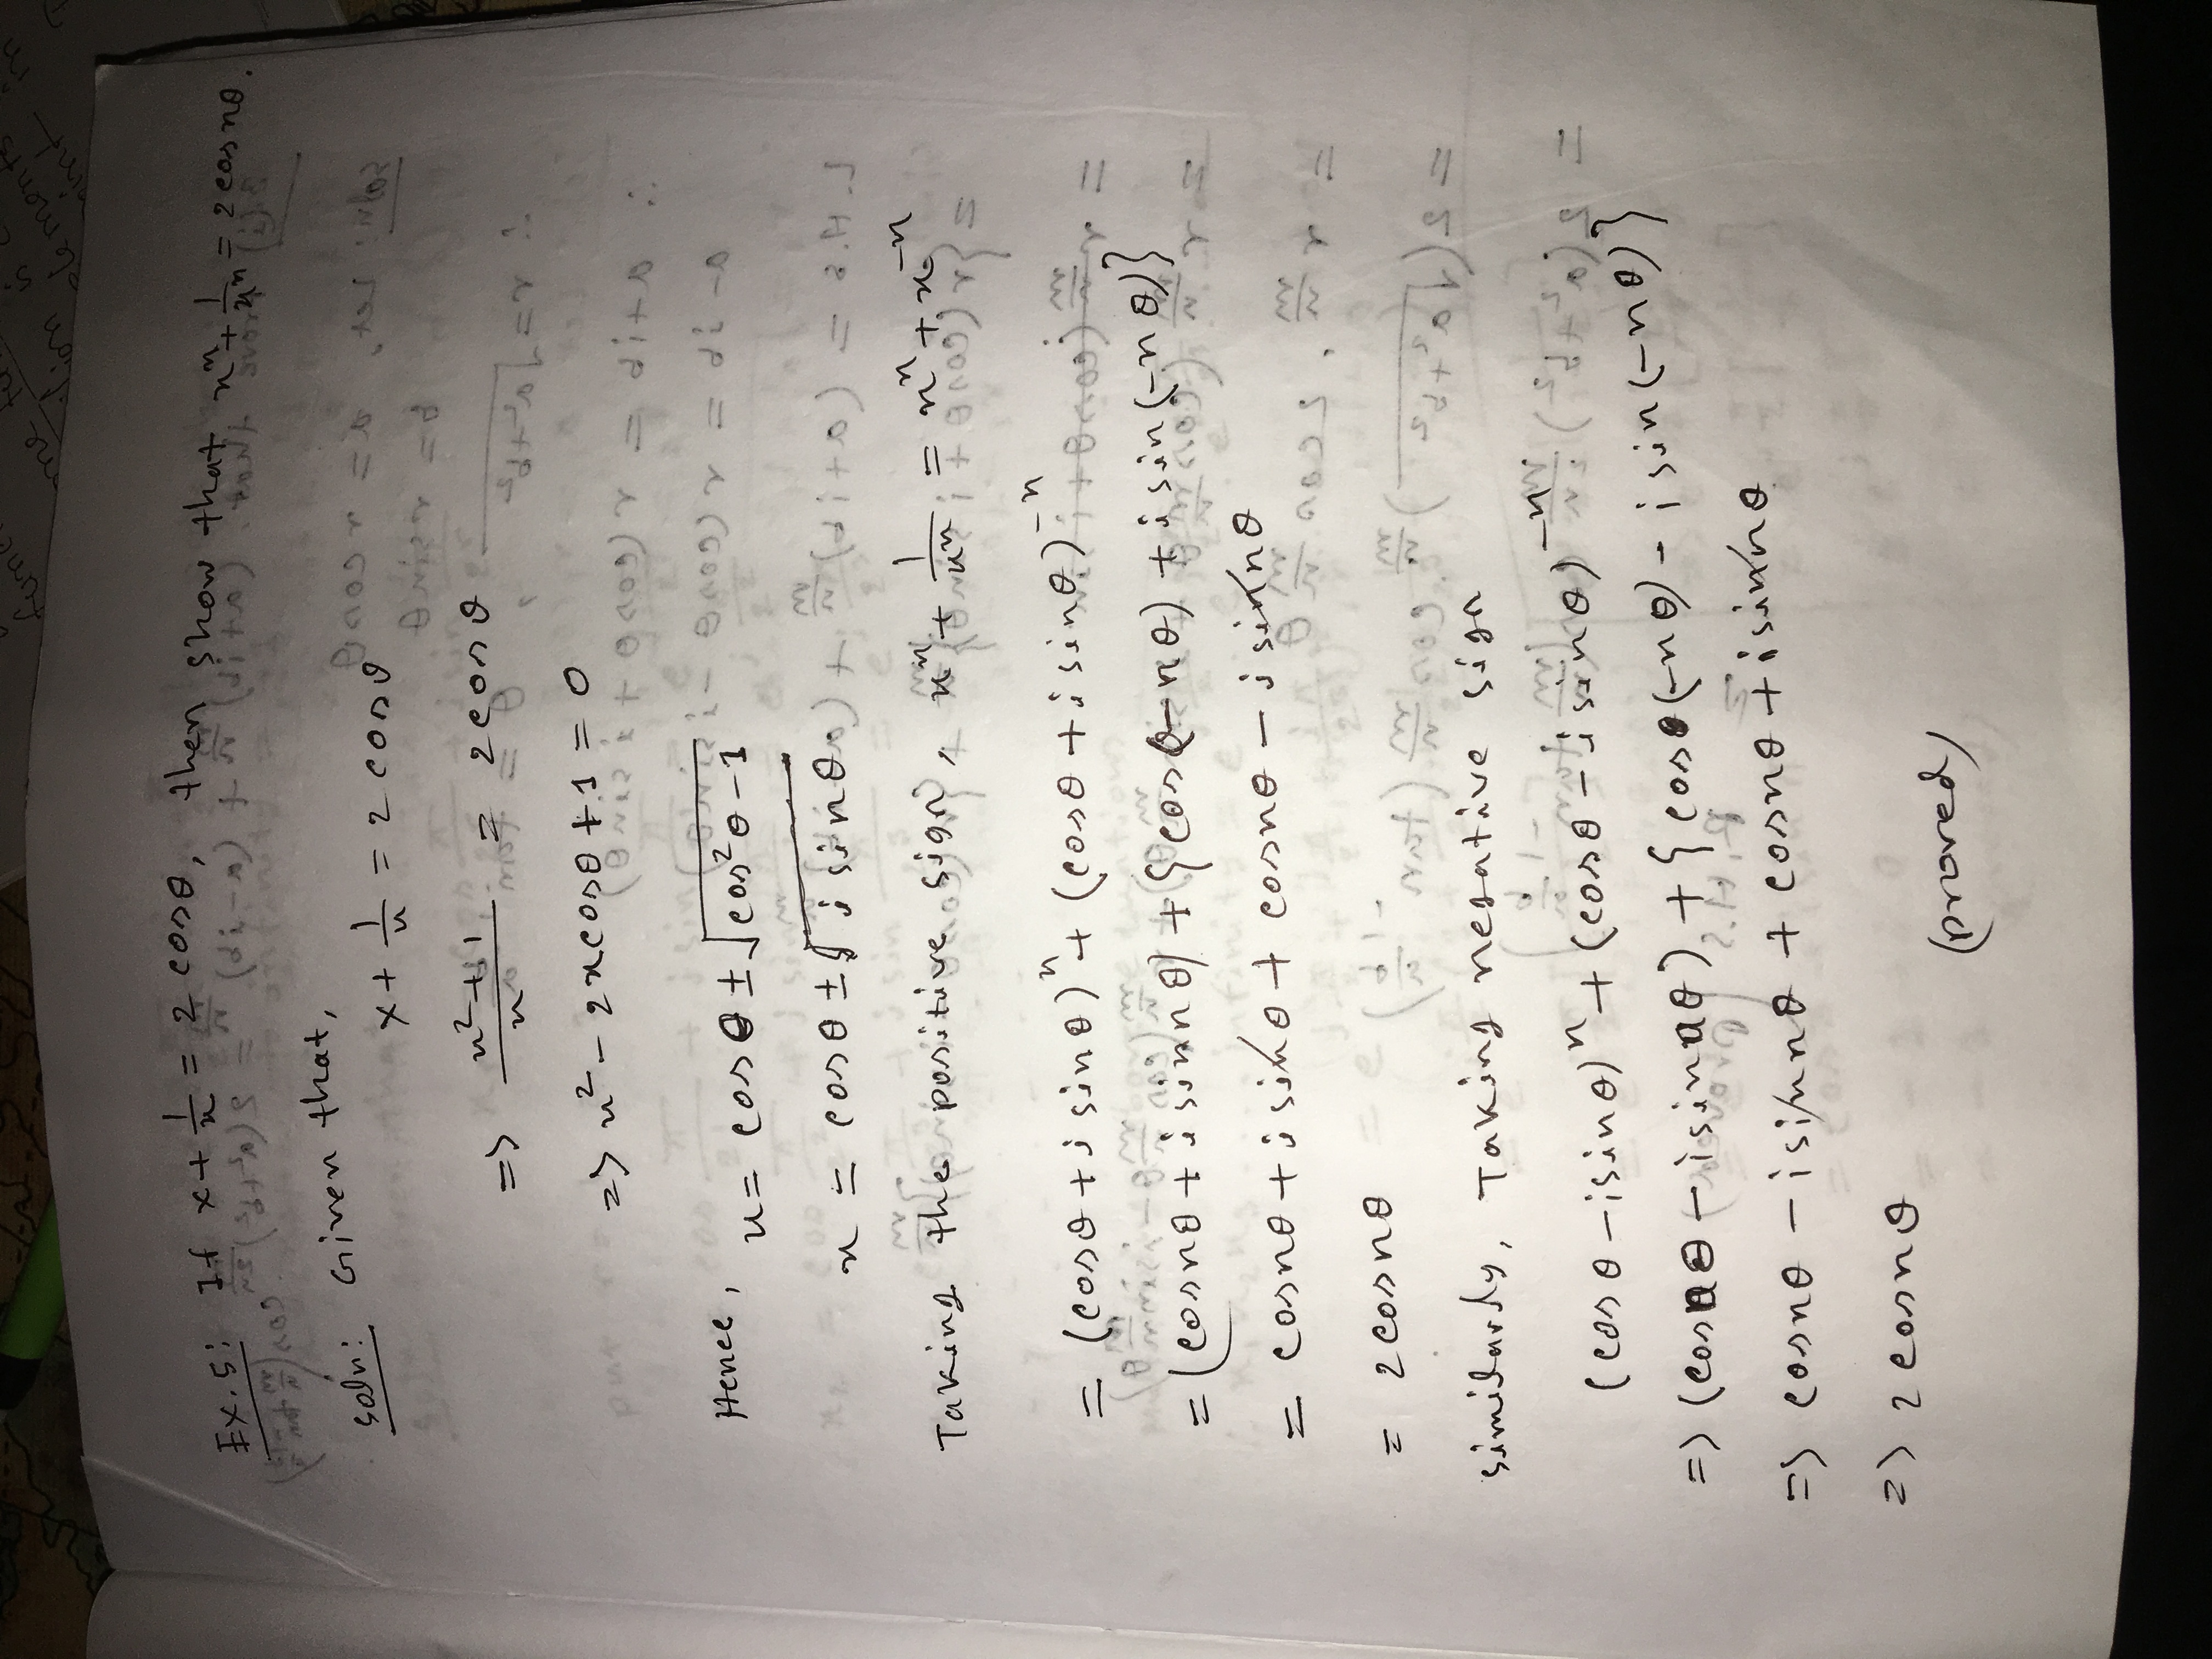 Ex.5: If x + 1/x = 2 cosθ, then show that x^n + 1/x^n = 2 cos nθ.
Soln: Given that,
x + 1/x = 2 cosθ
=> (x^2 + 1)/x = 2 cosθ
=> x^2 - 2x cosθ + 1 = 0
Hence, x = cosθ ± √(cos^2 θ - 1)
x = cosθ ± √(i sinθ)
Taking the positive sign, x^n + 1/x^n = x^n + x^-n
= (cosθ + i sinθ)^n + (cosθ + i sinθ)^-n
= (cos nθ + i sin nθ) + {cos(-nθ) + i sin(-nθ)}
= cos nθ + i sin θ + cos nθ - i sin nθ
= 2 cos nθ
similarly, Taking negative sign
(cosθ - i sinθ)^n + (cosθ - i sinθ)^-n
=> (cos nθ - i sin nθ) + {cos(-nθ) - i sin(-nθ)}
=> cos nθ - i sin nθ + cos nθ + i sin nθ
=> 2 cos nθ
(proved)